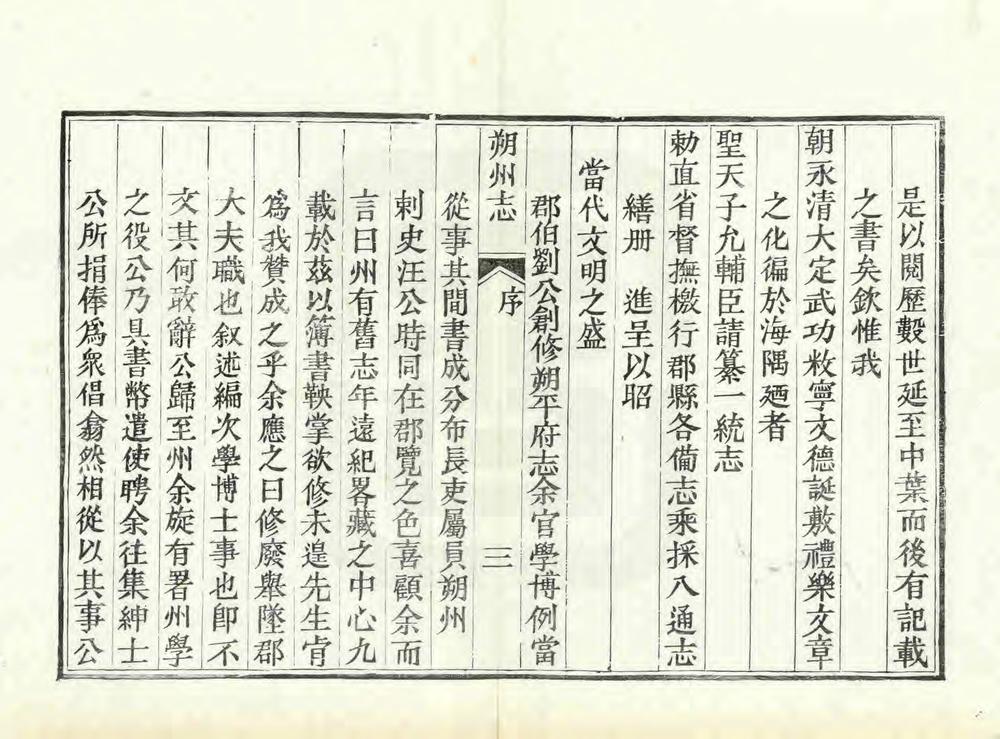 是以閱歷數世延至中葉而後有記載
之書矣欽惟我
朝永清大定武功敉寧文德誕敷禮樂文章
之化徧於海隅廼者
聖天子允輔臣請纂一統志
勅直省督撫檄行郡縣各備志乘採入通志
繕册　進呈以昭
當代文明之盛
郡伯劉公創修朔平府志余官學博例當
朔州志　序　三
從事其間書成分布長吏屬員朔州
刺史汪公時同在郡覽之色喜顧余而
言曰州有舊志年遠紀畧藏之中心九
載於茲以簿書鞅掌欲修未遑先生肯
爲我贊成之乎余應之曰修廢舉墜郡
大夫職也叙述編次學博士事也卽不
文其何敢辭公歸至州余旋有署州學
之役公乃具書幣遣使聘余往集紳士
公所捐俸爲衆倡翕然相從以其事公